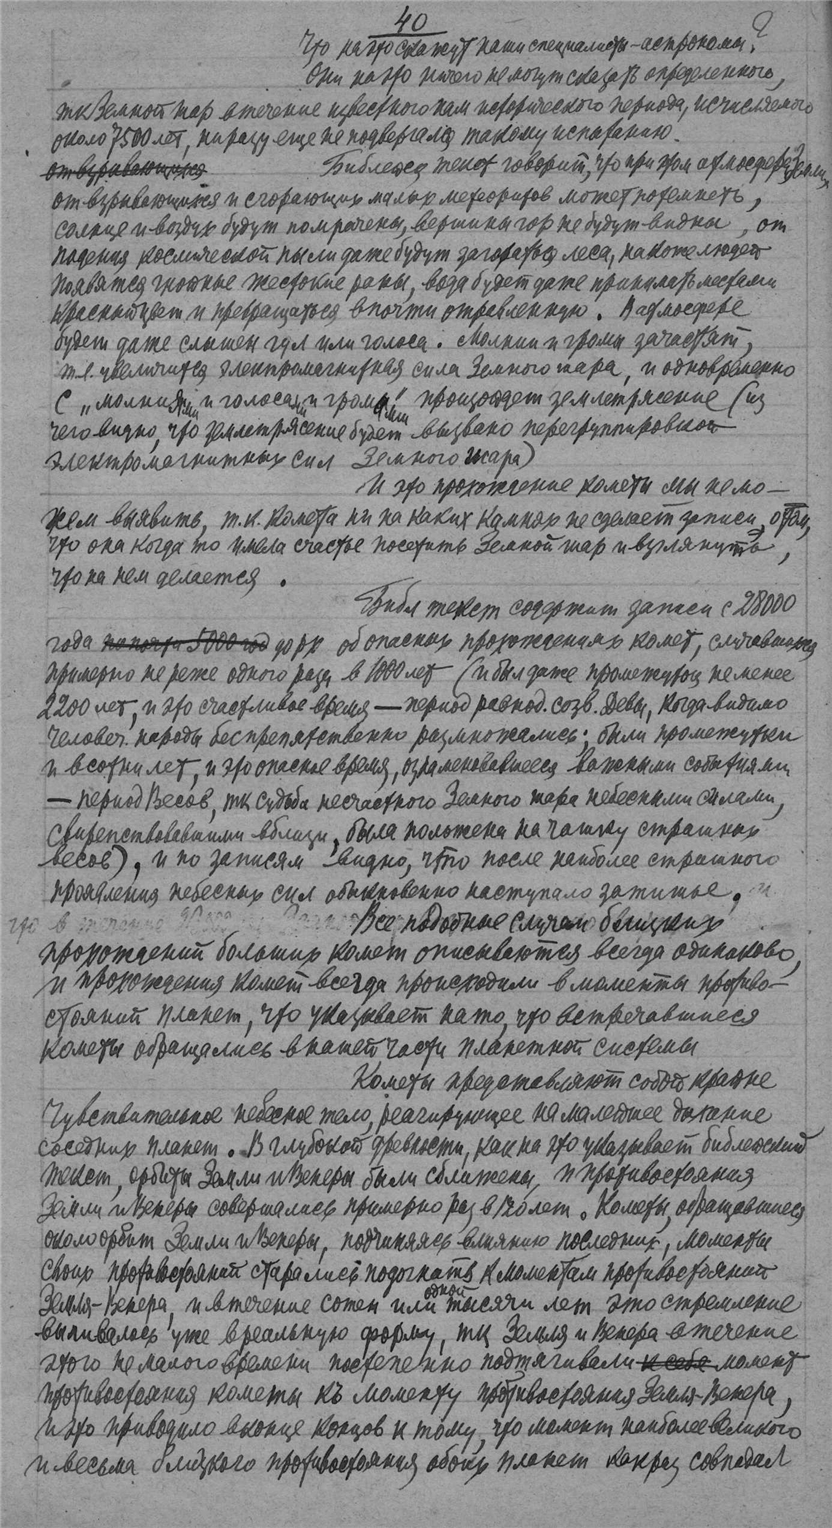 40
Что на это скажут наши специалисты-астрономы?
Они на это ничего не могут сказать определенного,
тк Земной шар в течение известного нам исторического периода, исчисляемого
около 7500 лет, ни разу еще не подвергался такому испытанию.
от взрывающихся Библейск текст говорит, что при этом атмосфера Земли
от взрывающихся и сгорающих малых метеоритов может потемнеть,
солнце и воздух будут помрачены, вершины гор не будут видны, от
падения космической пыли даже будут загораться леса, на коже людей
появятся гнойные жестокие раны, вода будет даже принимать местами
красный цвет и превращаться в почти отравленную. В атмосфере
будет даже слышен гул или голоса. Молнии и громы зачастят,
т.е. увеличится электромагнитная сила Земного шара, и одновременно
с „молниями и голосами и громами" произойдет землетрясение (из
чего видно, что землетрясение будет вызвано перегруппировкой
электромагнитных сил Земного шара)
И это прохождение кометы мы не мо-
жем выявить, т.к. комета ни на каких камнях не сделает записи о том,
что она когда то имела счастье посетить Земной шар и взглянуть,
что на нем делается.
Библ текст содержит записи с 28000
года по почти 5000 год до рх об опасных прохождениях комет, случавшихся
примерно не реже одного раза в 1000 лет (и был даже промежуток не менее
2200 лет, и это счастливое время — период равнод. созв. Девы, когда видимо
человеч. народы беспрепятственно размножались; были промежутки
и в сотни лет, и это опасное время, ознаменовавшееся важными событиями
— период Весов, тк судьба несчастного Земного шара небесными силами,
свирепствовавшими вблизи, была положена на чашку страшных
весов), и по записям видно, что после наиболее страшного
проявления небесных сил обыкновенно наступало затишье. и
что в течение
Все подобные случаи близких
прохождений больших комет описываются всегда одинаково,
и прохождения комет всегда происходили в моменты противо-
стояний планет, что указывает на то, что встречавшиеся
кометы обращались в нашей части планетной системы
Кометы представляют собою крайне
чувствительное небесное тело, реагирующее на малейшее дыхание
соседних планет. В глубокой древности, как на это указывает библейский
текст, орбиты Земли и Венеры были сближены, и противостояния
Земли и Венеры совершались примерно раз в 120 лет. Кометы, обращавшиеся
около орбит Земли и Венеры, подчиняясь влиянию последних, моменты
своих противостояний старались подогнать к моментам противостояний
Земля-Венера, и в течение сотен или одной тысячи лет это стремление
выливалось уже в реальную форму, тк Земля и Венера в течение
этого немалого времени постепенно подтягивали к себе момент
противостояния кометы къ моменту противостояния Земля-Венера,
и это приводило в конце концов к тому, что момент наиболее великого
и весьма близкого противостояния обоих планет как раз совпадал